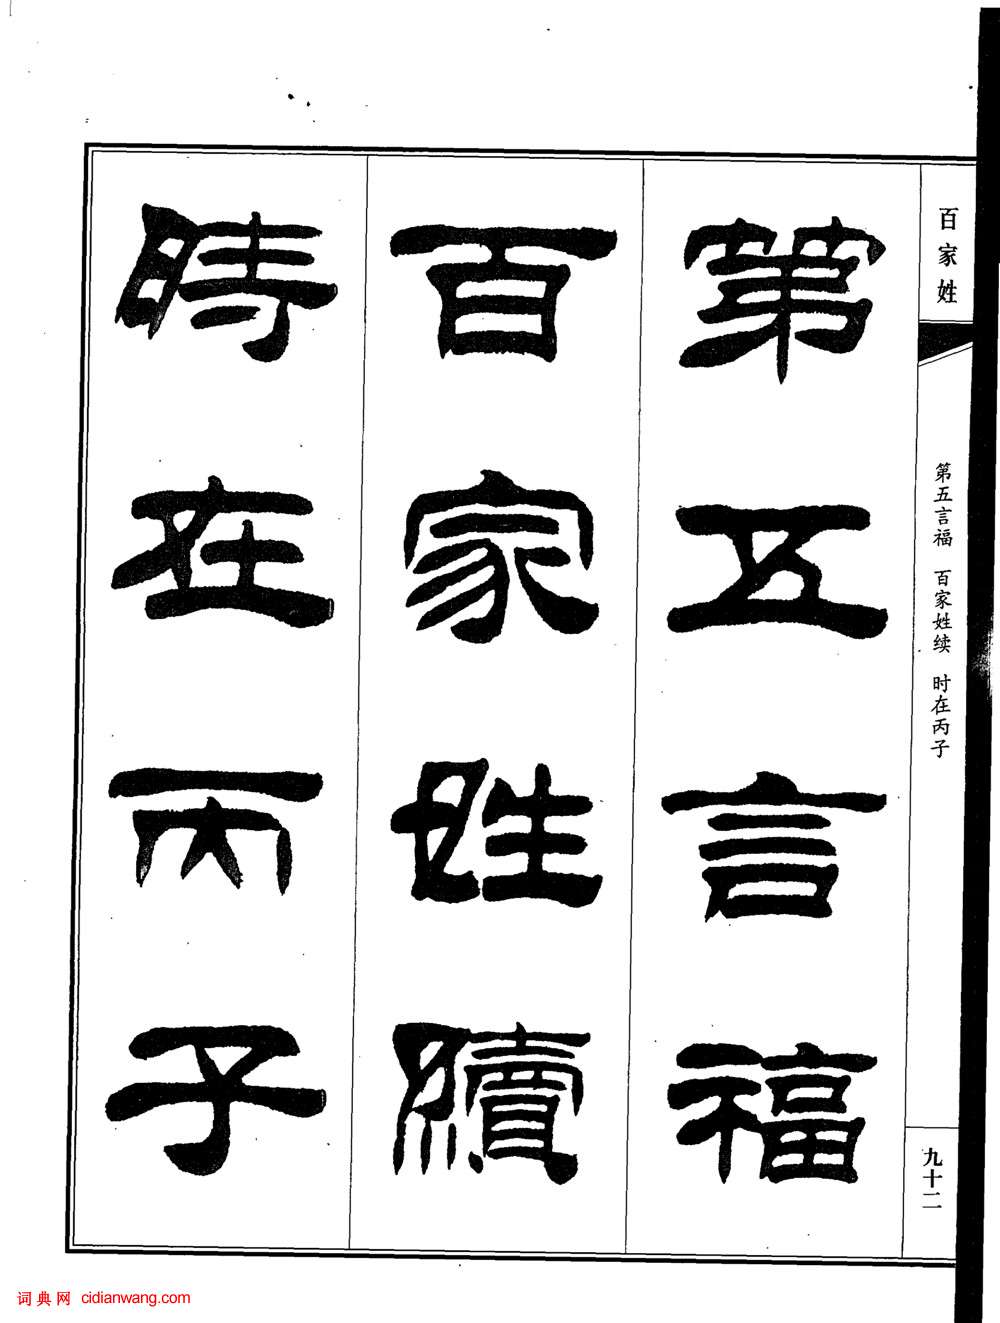 百家姓
第五言福 百家姓续 时在丙子
九十二
第五言福
百家姓續
時在丙子
词典网 cidianwang.com